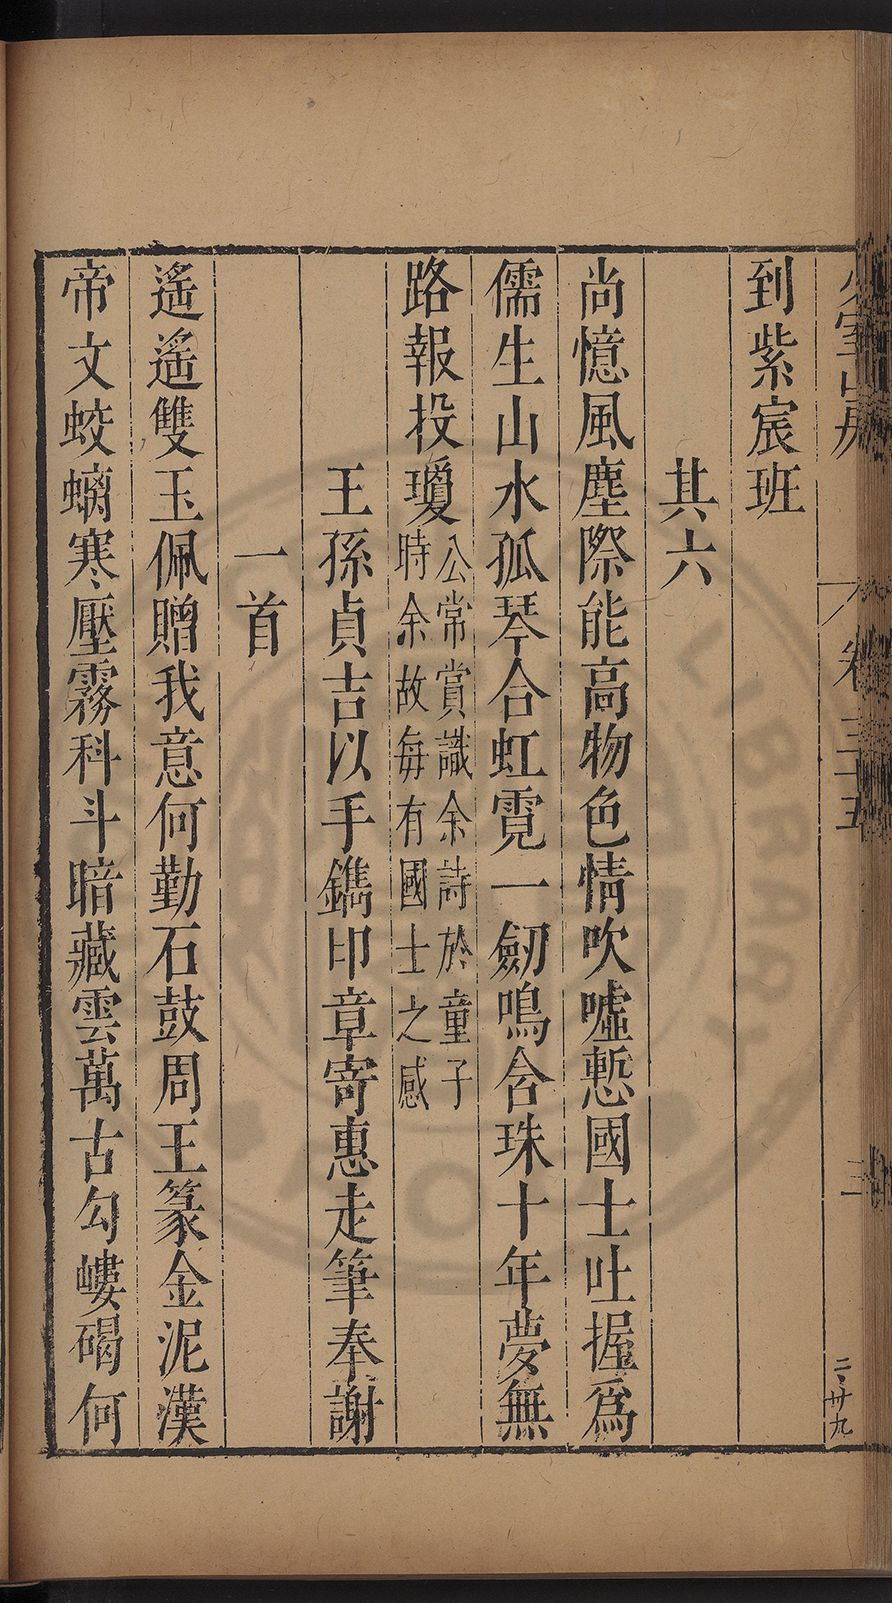 少室山房
卷三十五
三
二、卅九
到紫宸班
其六
尚憶風塵際能高物色情吹噓慙國士吐握爲
儒生山水孤琴合虹霓一劒鳴含珠十年夢無
路報投瓊公常賞識余詩於童子
時余故每有國士之感
王孫貞吉以手鐫印章寄惠走筆奉謝
一首
遙遙雙玉佩贈我意何勤石鼓周王篆金泥漢
帝文蛟螭寒壓霧科斗暗藏雲萬古勾嶁碣何